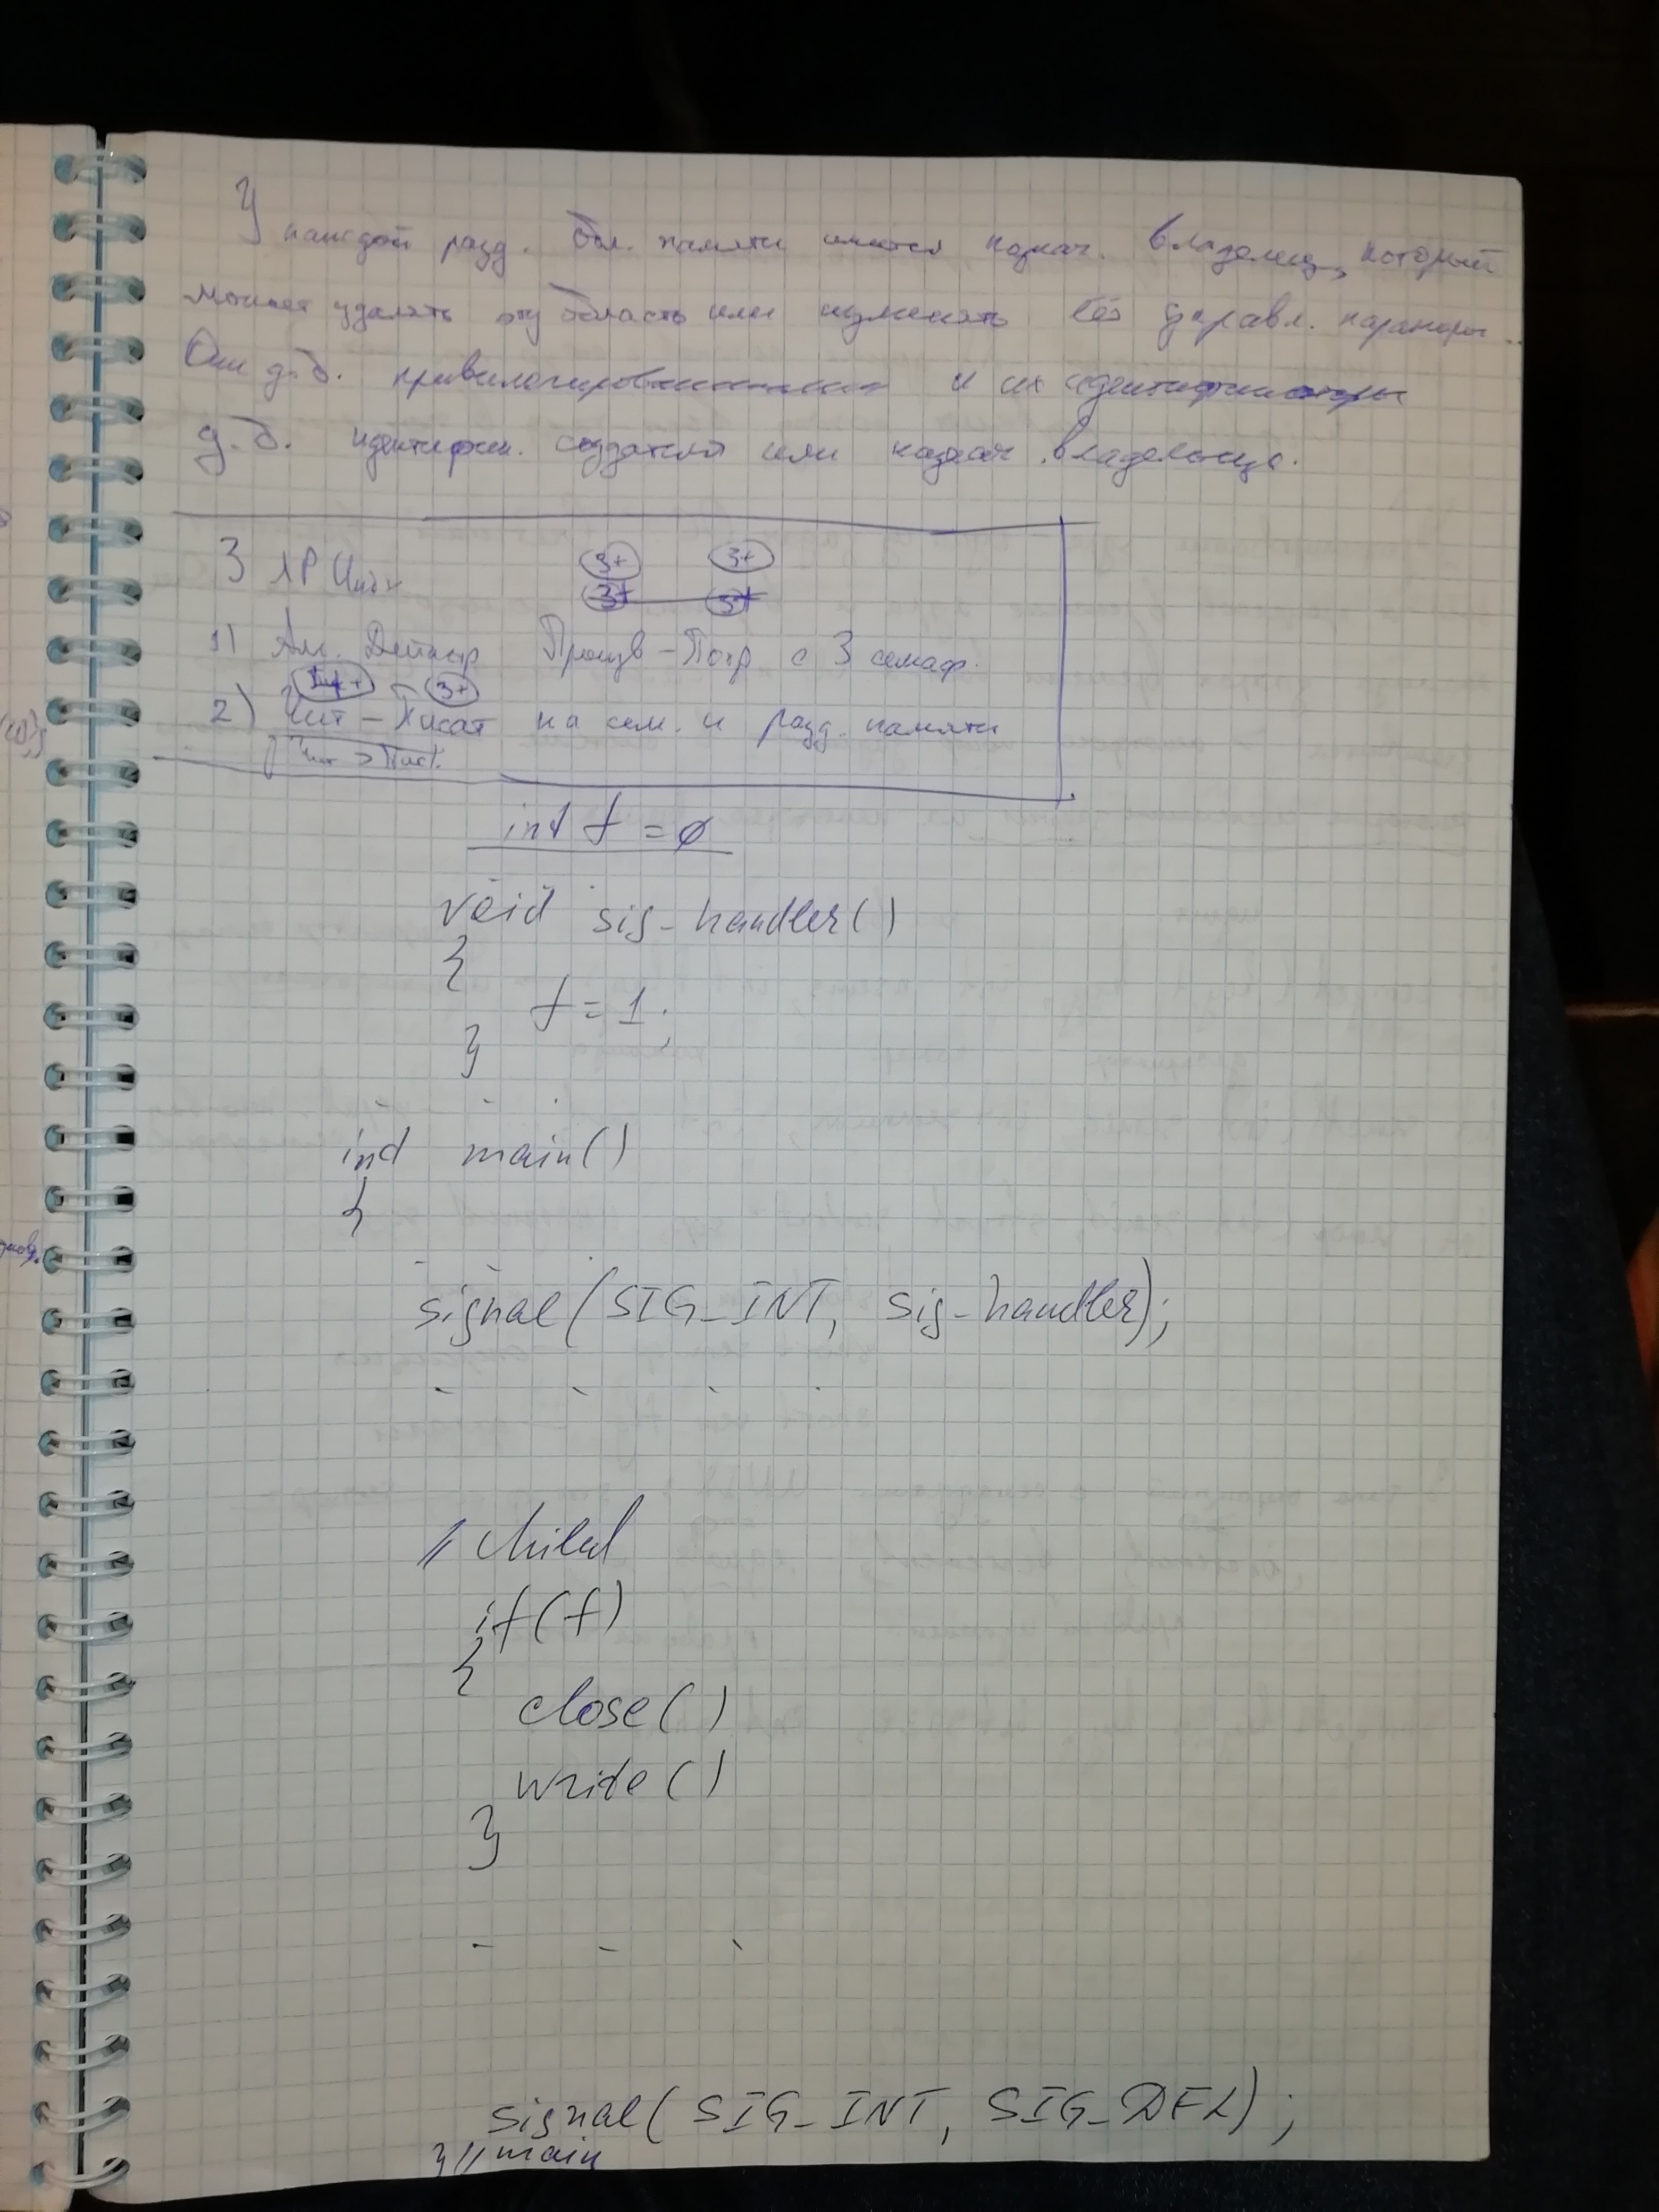 У каждой разд. обл. памяти имеется назнач. владелец, который
может удалять эту область или изменять её управл. параметры.
Они д.б. привилегированными и их идентификаторы
д.б. идентифик. создателя или назнач. владельца.
3 ЛР Unix
3+ 3+
3+ 3+
1) Ал. Дейкстр Произв-Потр с 3 семаф.
3+
2) Чит-Писат на сем. и разд. памяти
Чит > Пис.
int f = 0
void sig-handler()
{
f = 1;
}
int main()
{
signal(SIG_INT, sig-handler);
// child
if(f)
{
close()
write()
}
signal(SIG_INT, SIG_DFL);
} // main